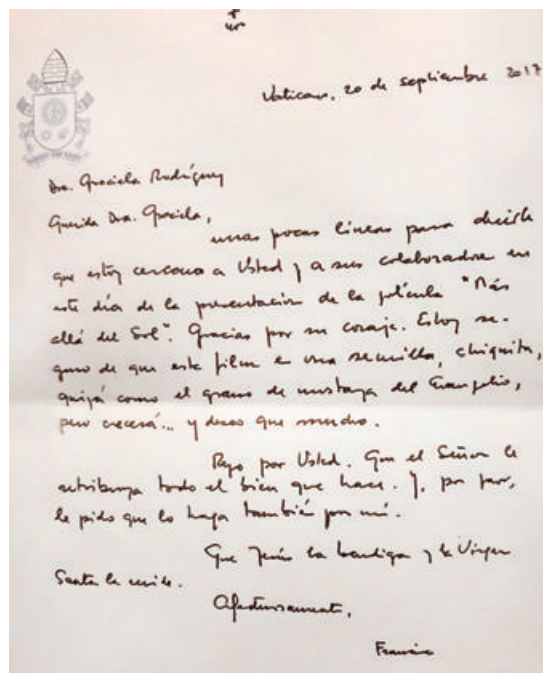 Vaticano, 20 de septiembre 2017
Dra. Graciela Rodríguez
Querida Dra. Graciela,
unas pocas líneas para decirle
que estoy cercano a Usted y a sus colaboradores en
este día de la presentación de la película "Más
allá del Sol". Gracias por su coraje. Estoy se-
guro de que este film es una semilla, chiquita,
quizá como el grano de mostaza del Evangelio,
pero crecerá... y deseo que mucho.
Rezo por Usted. Que el Señor le
retribuya todo el bien que hace. Y, por favor,
le pido que lo haga también por mí.
Que Jesús la bendiga y la Virgen
Santa la cuide.
Afectuosamente,
Francisco